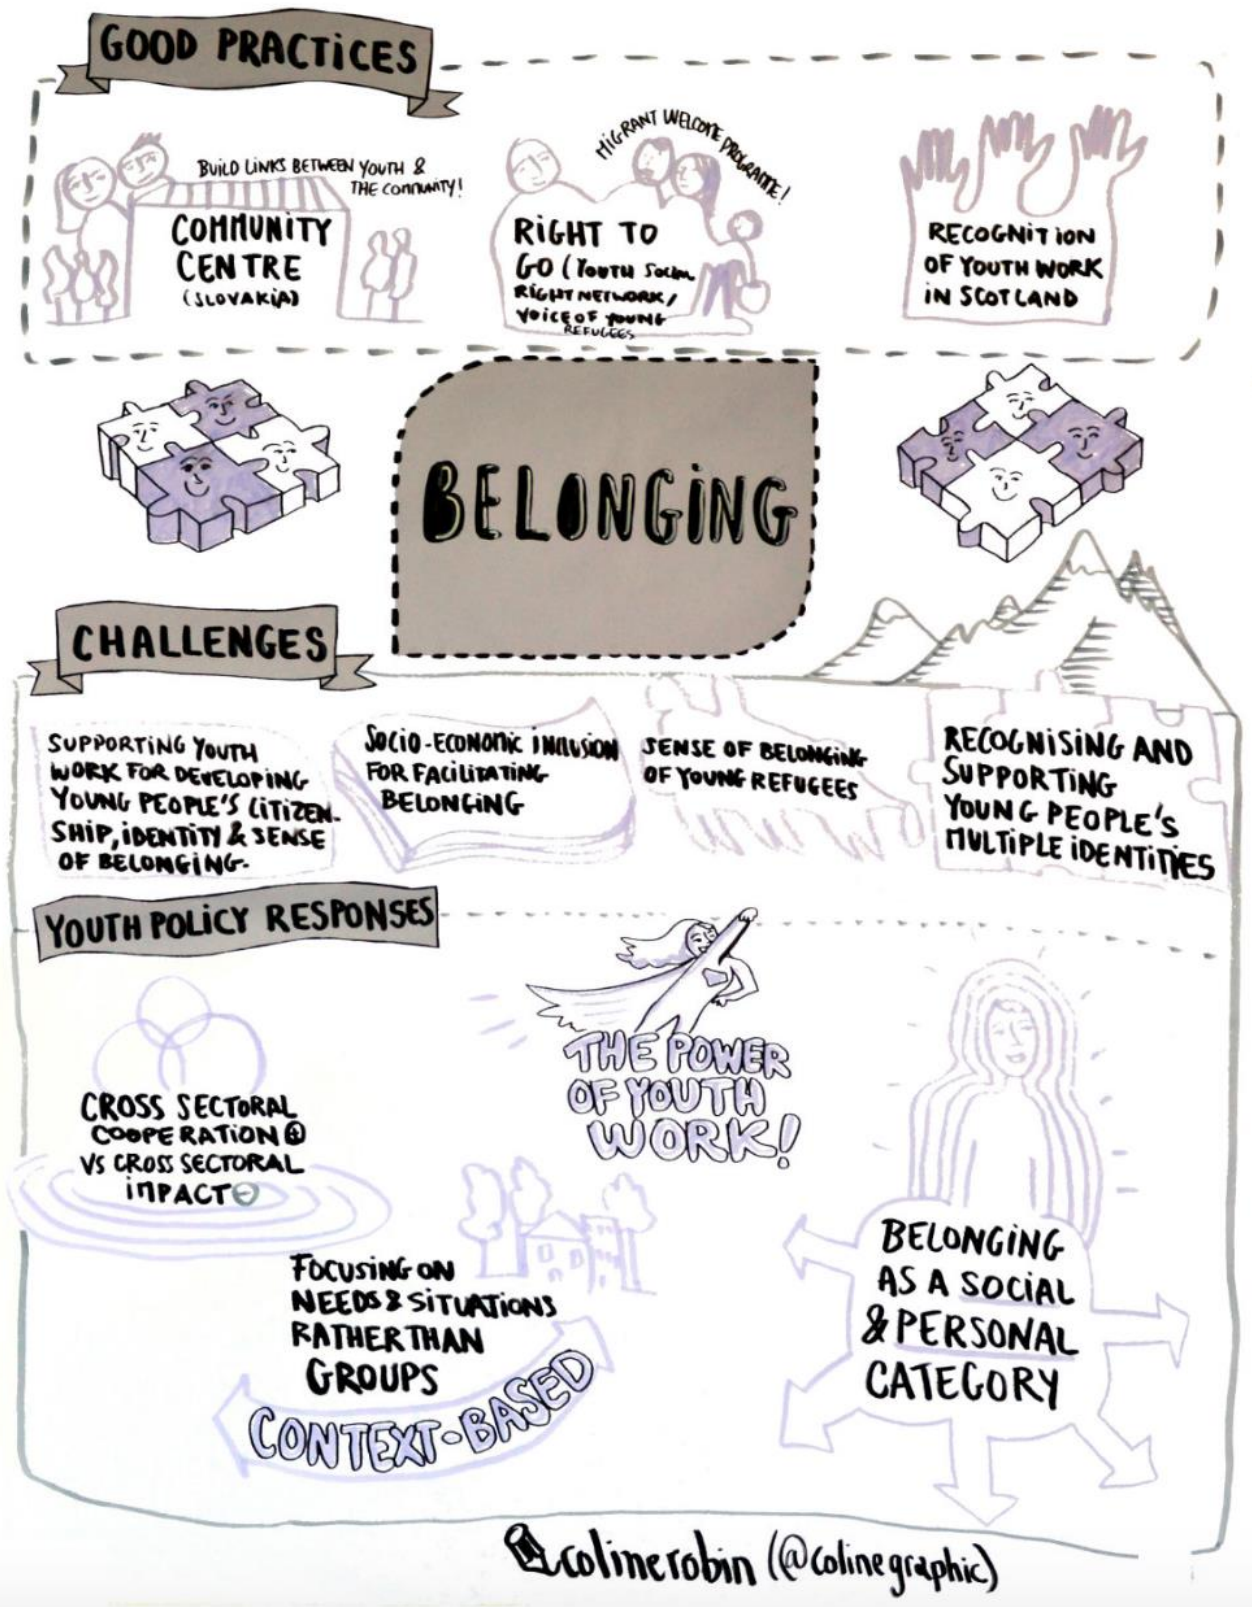 GOOD PRACTICES
BUILD LINKS BETWEEN YOUTH &
THE COMMUNITY!
COMMUNITY
CENTRE
(SLOVAKIA)
MIGRANT WELCOME PROGRAMME!
RIGHT TO
GO (YOUTH SOCIAL
RIGHT NETWORK/
VOICE OF YOUNG
REFUGEES
RECOGNITION
OF YOUTH WORK
IN SCOTLAND
BELONGING
CHALLENGES
SUPPORTING YOUTH
WORK FOR DEVELOPING
YOUNG PEOPLE'S CITIZEN-
SHIP, IDENTITY & SENSE
OF BELONGING.
SOCIO-ECONOMIC INCLUSION
FOR FACILITATING
BELONGING
SENSE OF BELONGING
OF YOUNG REFUGEES
RECOGNISING AND
SUPPORTING
YOUNG PEOPLE'S
MULTIPLE IDENTITIES
YOUTH POLICY RESPONSES
THE POWER
OF YOUTH
WORK!
CROSS SECTORAL
COOPERATION ⊕
VS CROSS SECTORAL
IMPACT ⊖
FOCUSING ON
NEEDS & SITUATIONS
RATHER THAN
GROUPS
CONTEXT-BASED
BELONGING
AS A SOCIAL
& PERSONAL
CATEGORY
colinerobin (@colinegraphic)